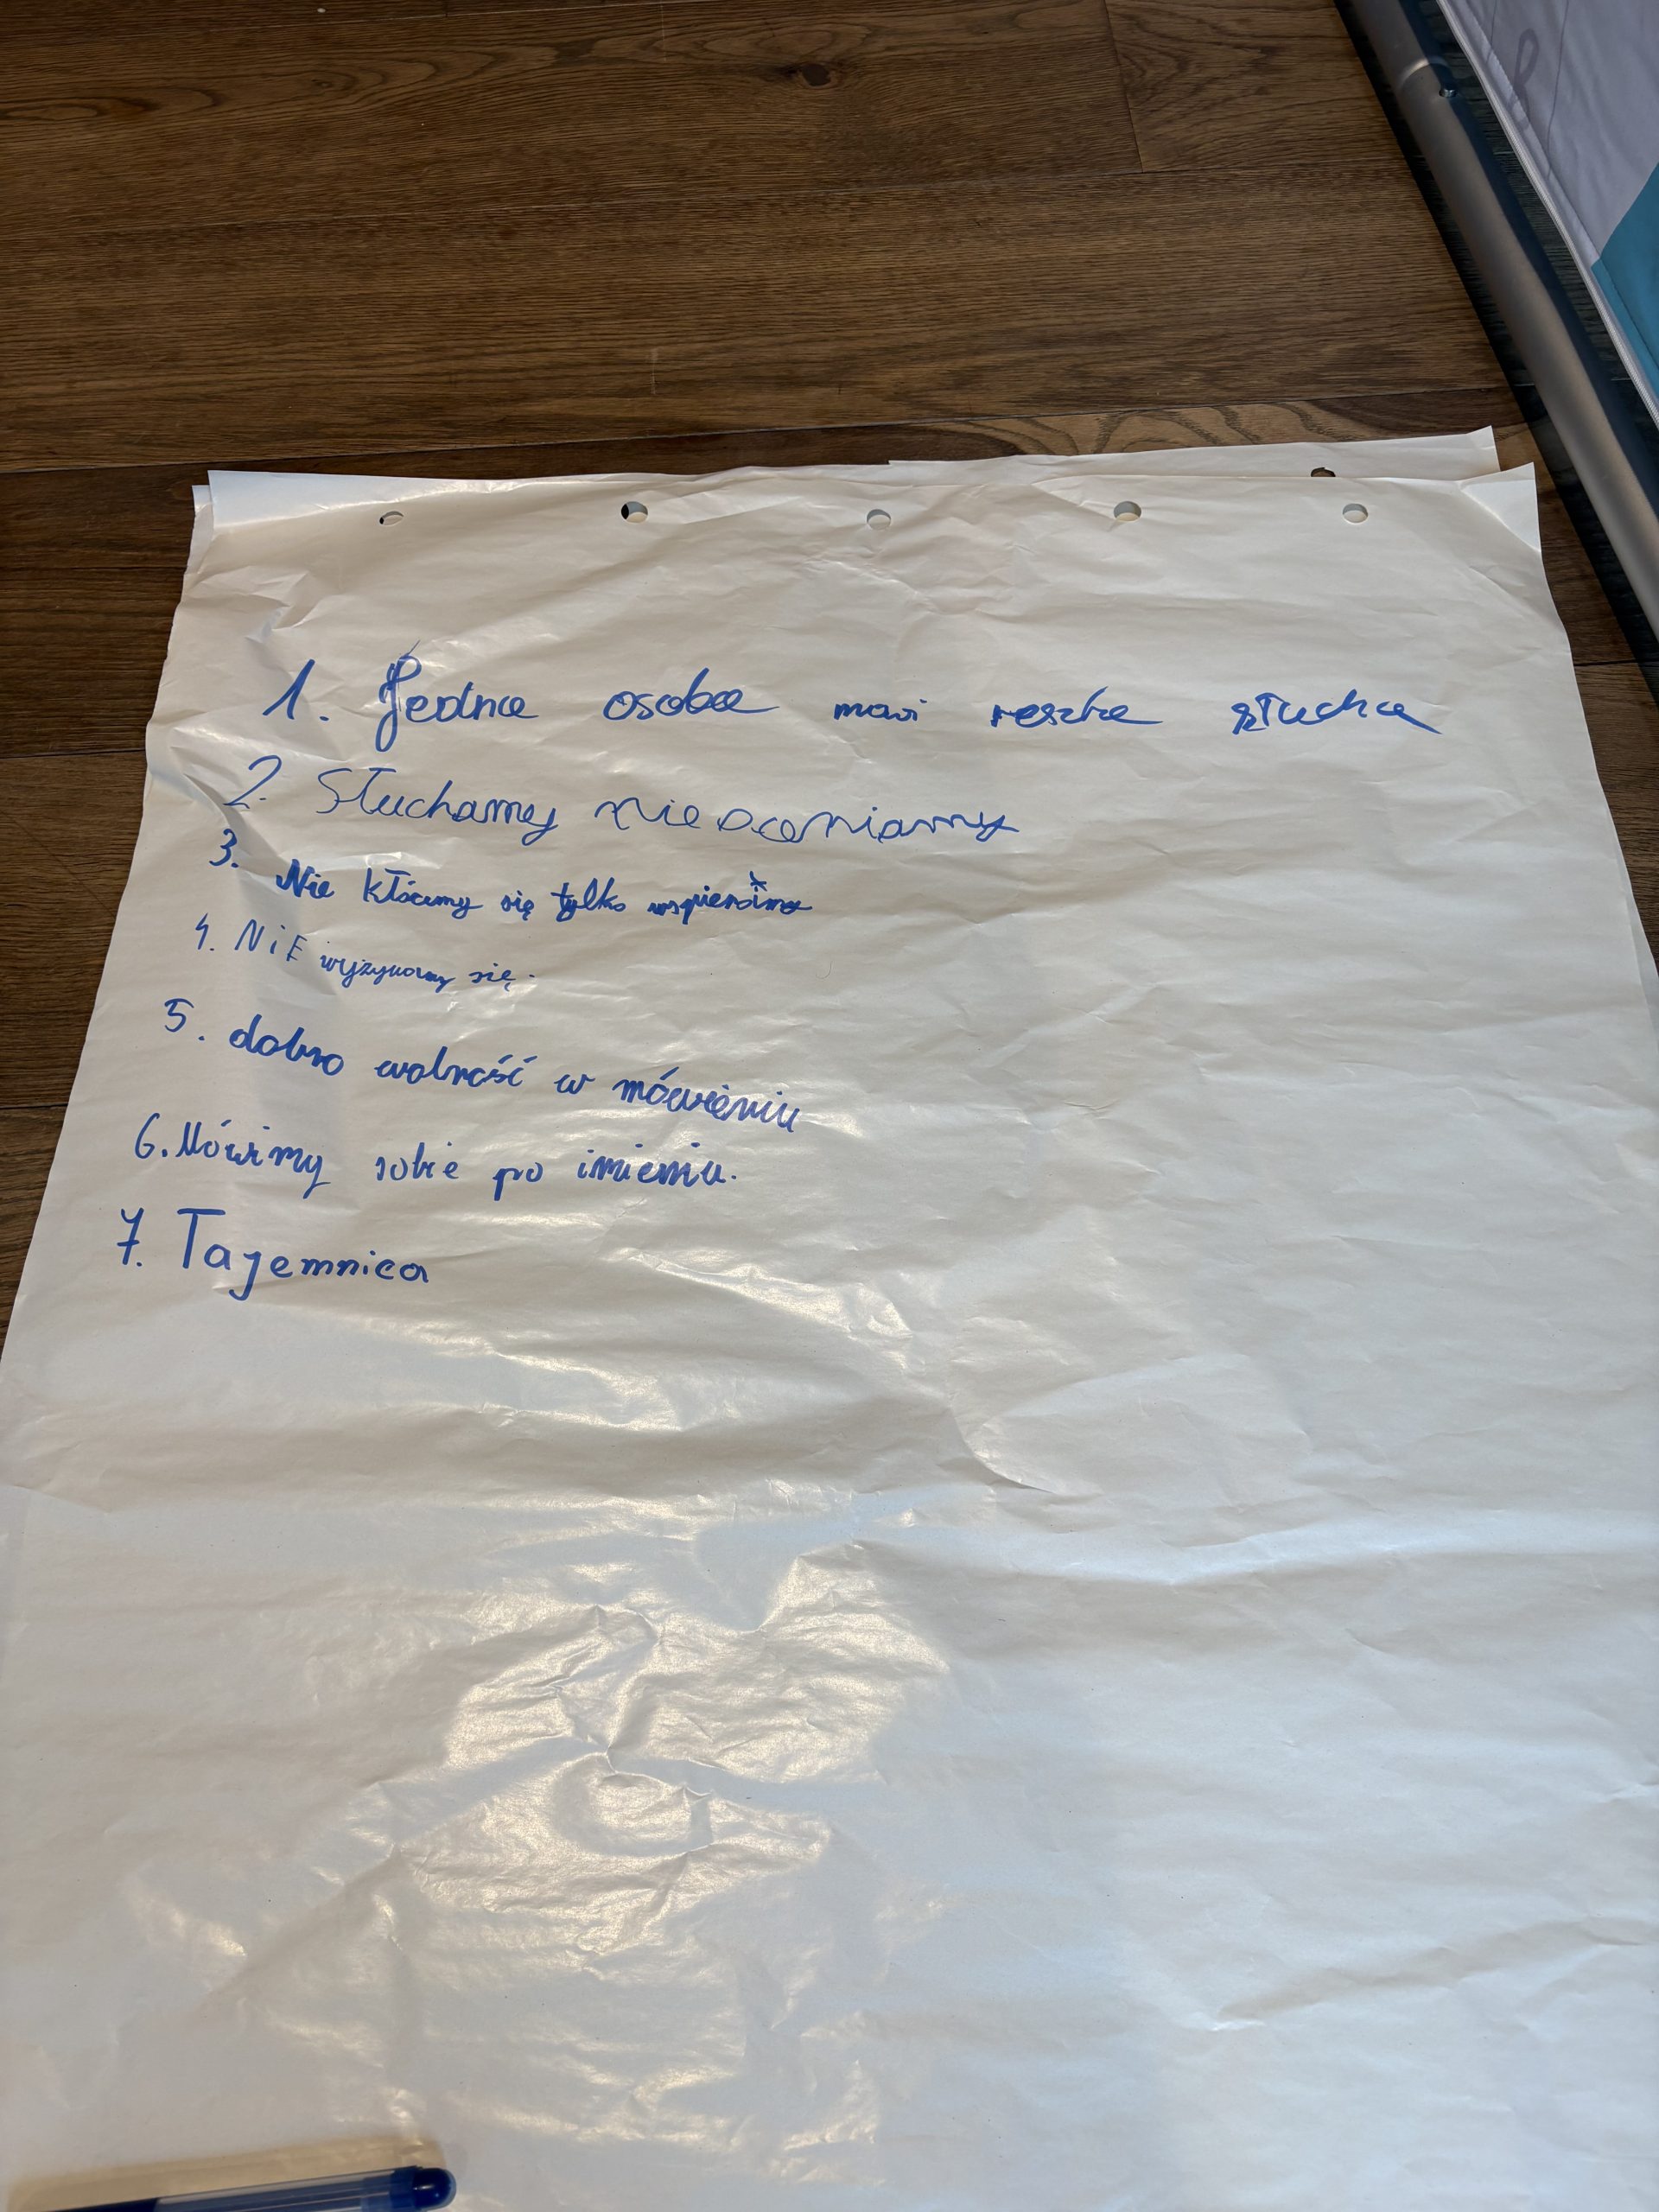 1. Jedna osoba mówi reszta słucha
2. Słuchamy nie oceniamy
3. Nie kłócimy się tylko wspieramy
4. NiE wyzywamy się.
5. dobro wolność w mówieniu
6. Mówimy sobie po imieniu.
7. Tajemnica